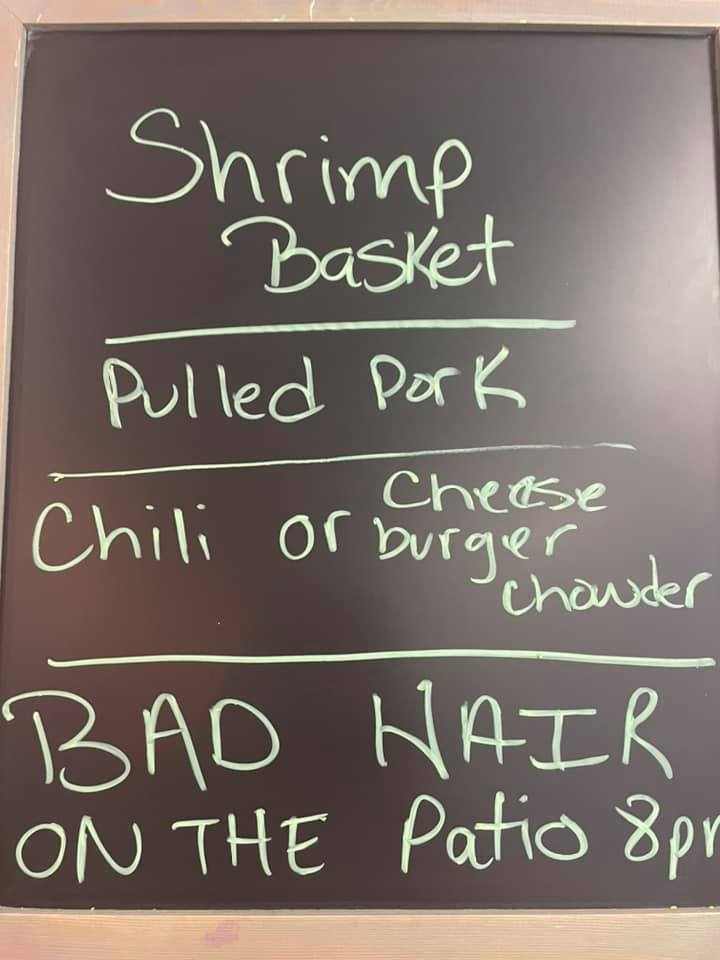 Shrimp
Basket
Pulled Pork
Chili or Cheese
burger
chowder
BAD HAIR
ON THE Patio 8pm